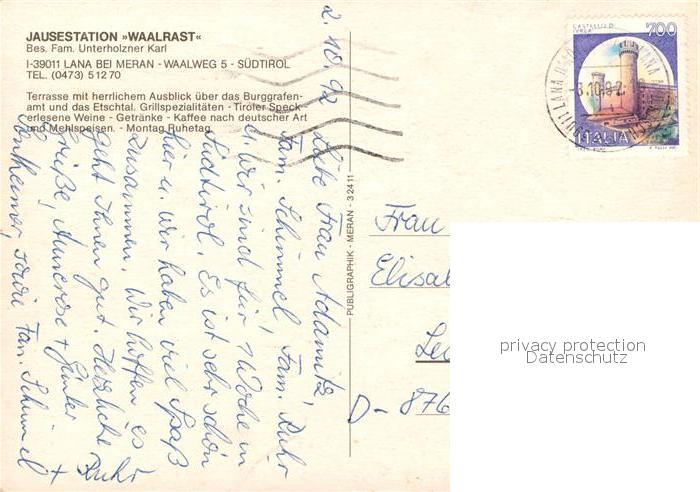 JAUSESTATION »WAALRAST«
Bes. Fam. Unterholzner Karl
I-39011 LANA BEI MERAN - WAALWEG 5 - SÜDTIROL
TEL. (0473) 51270
Terrasse mit herrlichem Ausblick über das Burggrafen-
amt und das Etschtal. Grillspezialitäten - Tiroler Speck -
erlesene Weine - Getränke - Kaffee nach deutscher Art
und Mehlspeisen. - Montag Ruhetag.
2.10.92
Liebe Frau Adamitz,
Fam. Schimmel, Fam. Ruhr
u. wir sind für 1 Woche in
Südtirol. Es ist sehr schön
hier u. wir haben viel Spaß
zusammen. Wir hoffen es
geht Ihnen gut. Herzliche
Grüße, Annerose + Günter
sowie Fam. Schimmel +
Ruhr
PUBLIGRAPHIK - MERAN - 32411
CASTELLO DI
IVREA
700
ITALIA
-3.10.92
Frau
Elisa
D-876
privacy protection
Datenschutz